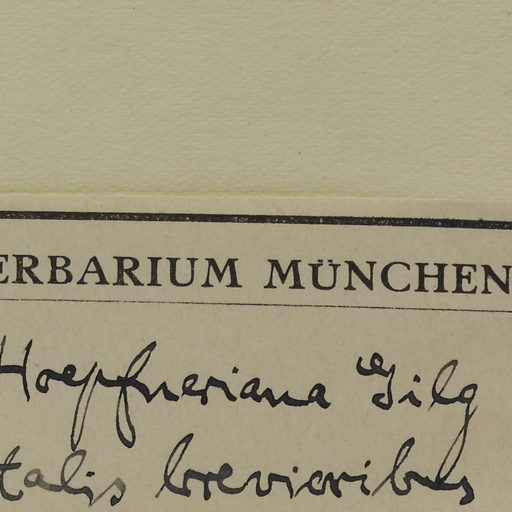 ERBARIUM MÜNCHEN
Hoepfneriana Gilg
talis brevioribus